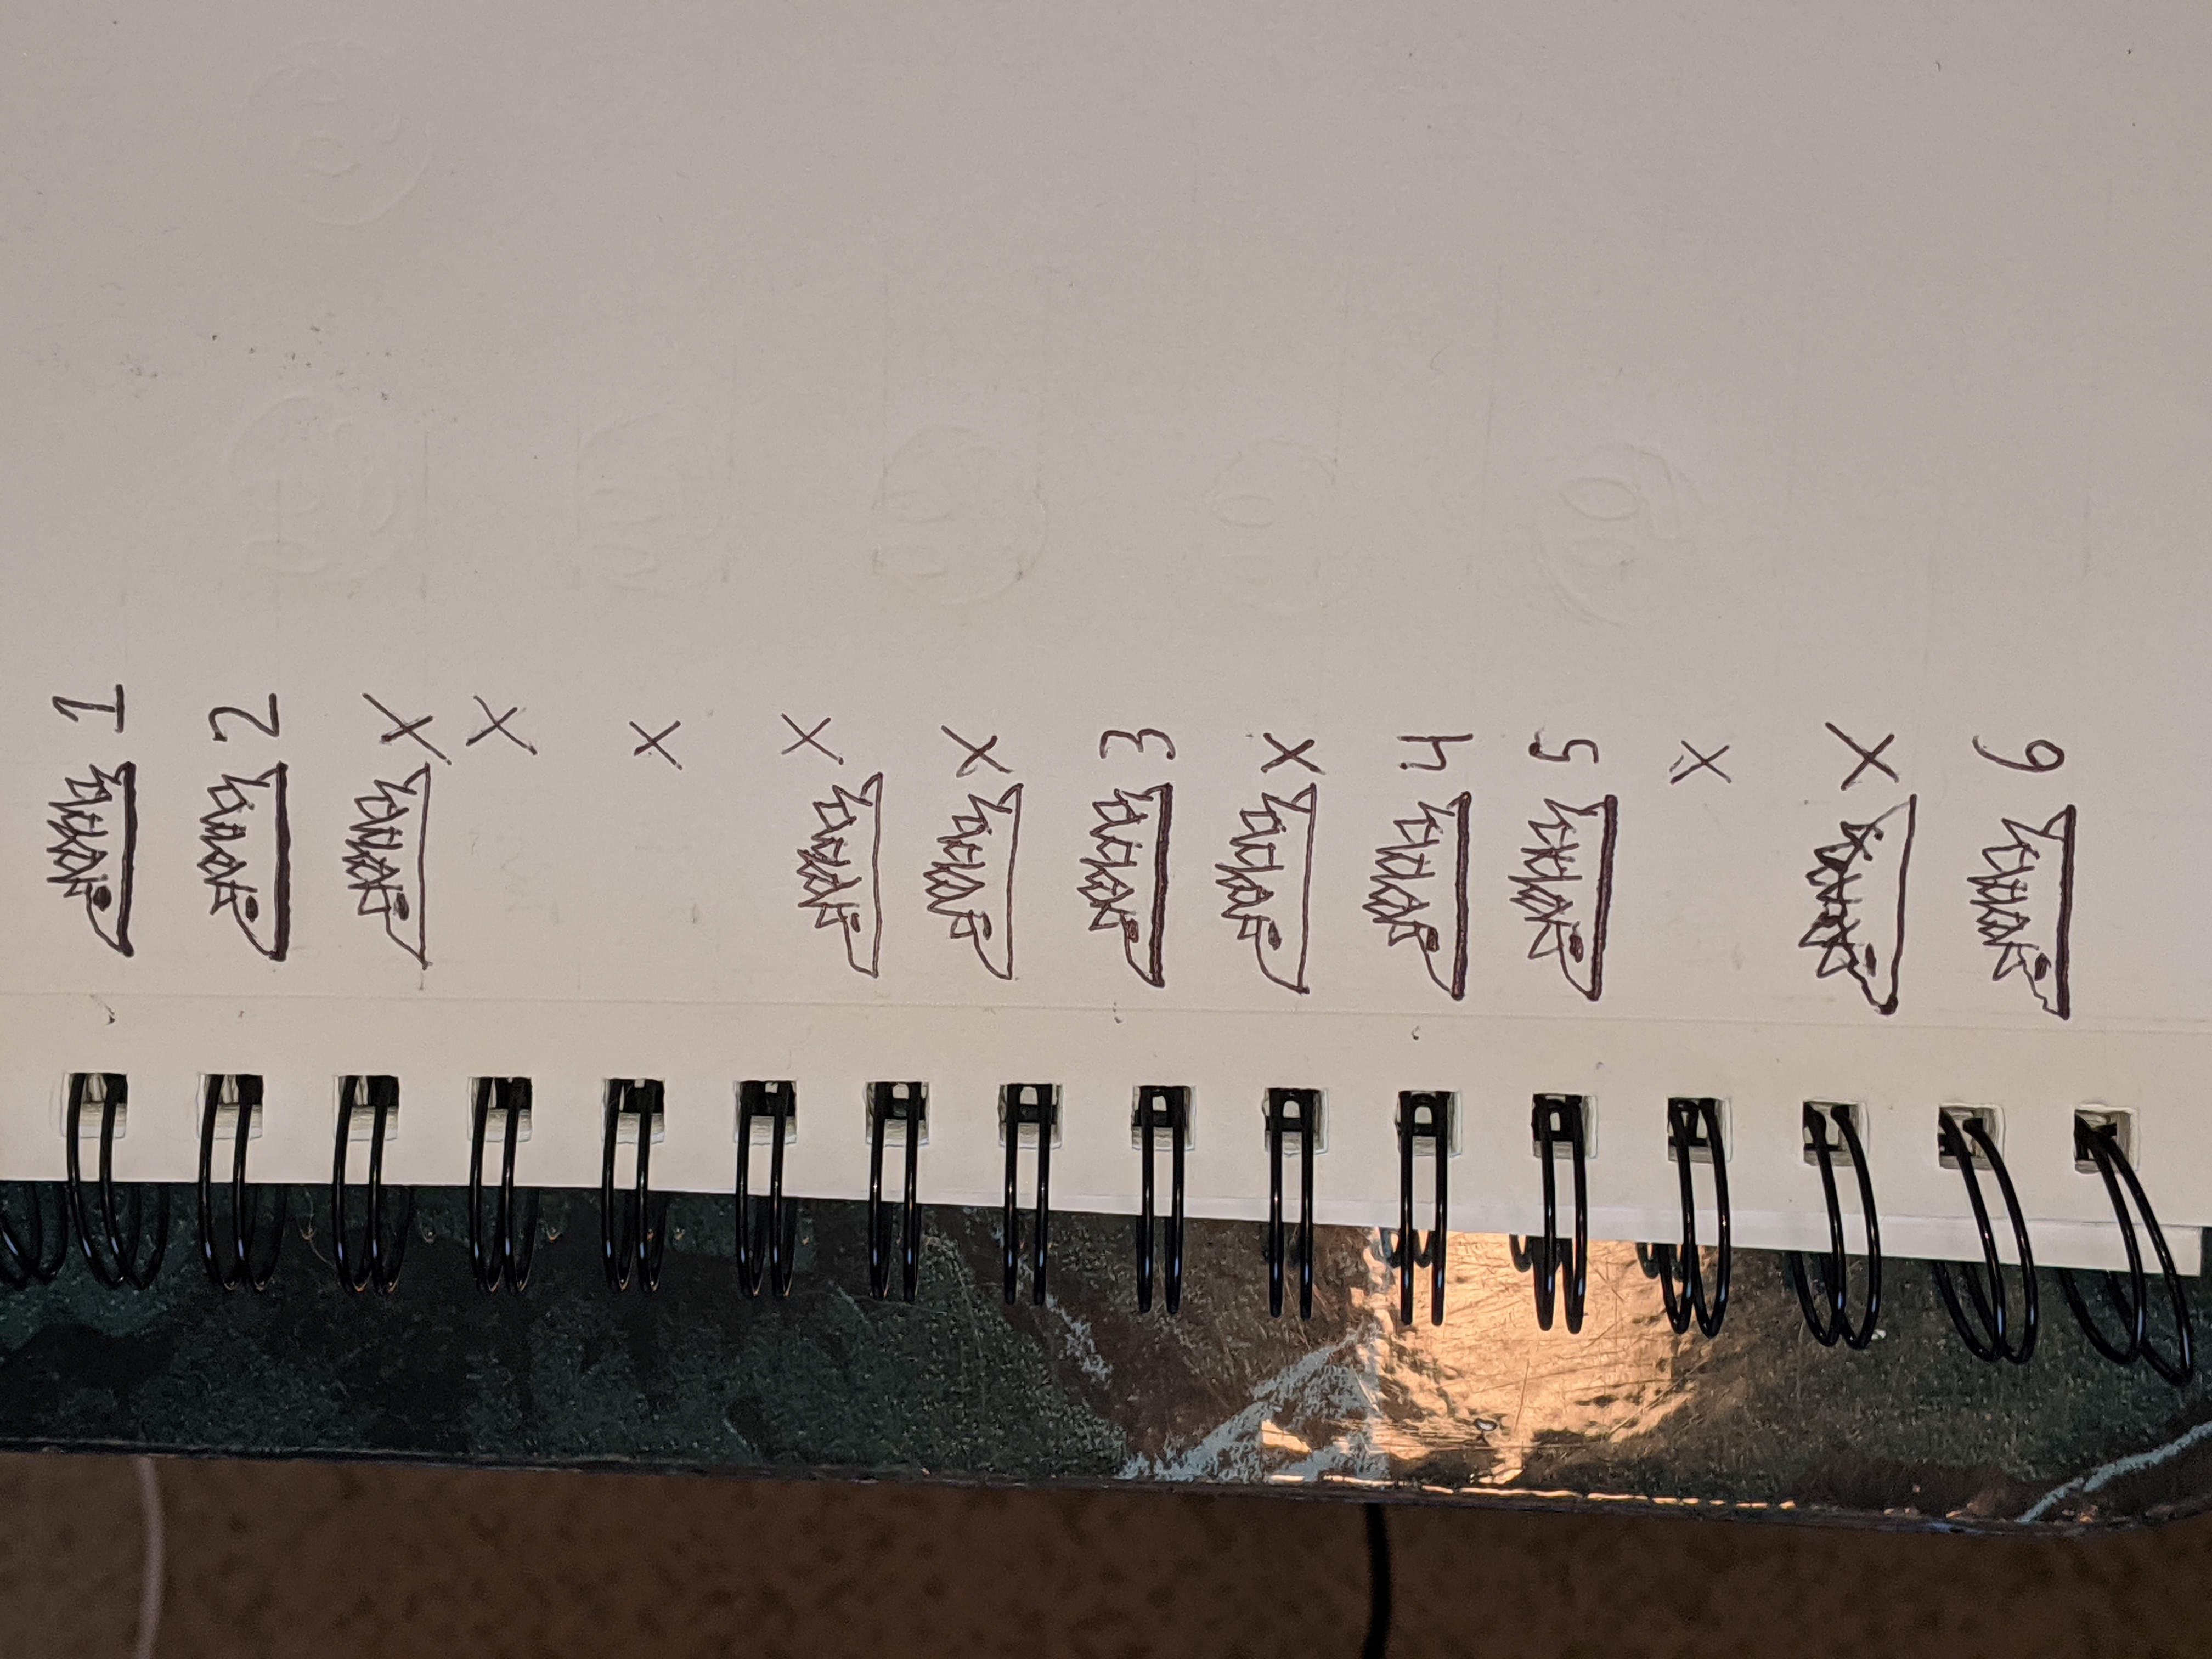 1
2
X
X
X
X
X
3
X
4
5
X
X
6